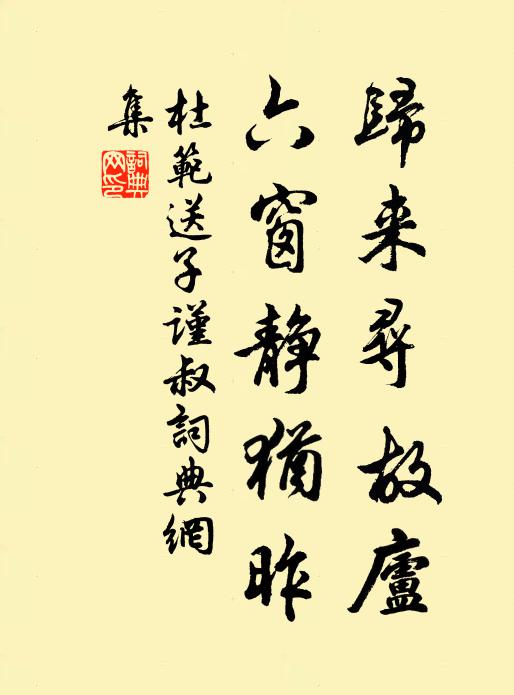 歸来尋故廬
六窗靜猶昨
杜範送子謹叔詞典網
集
詞典
网印